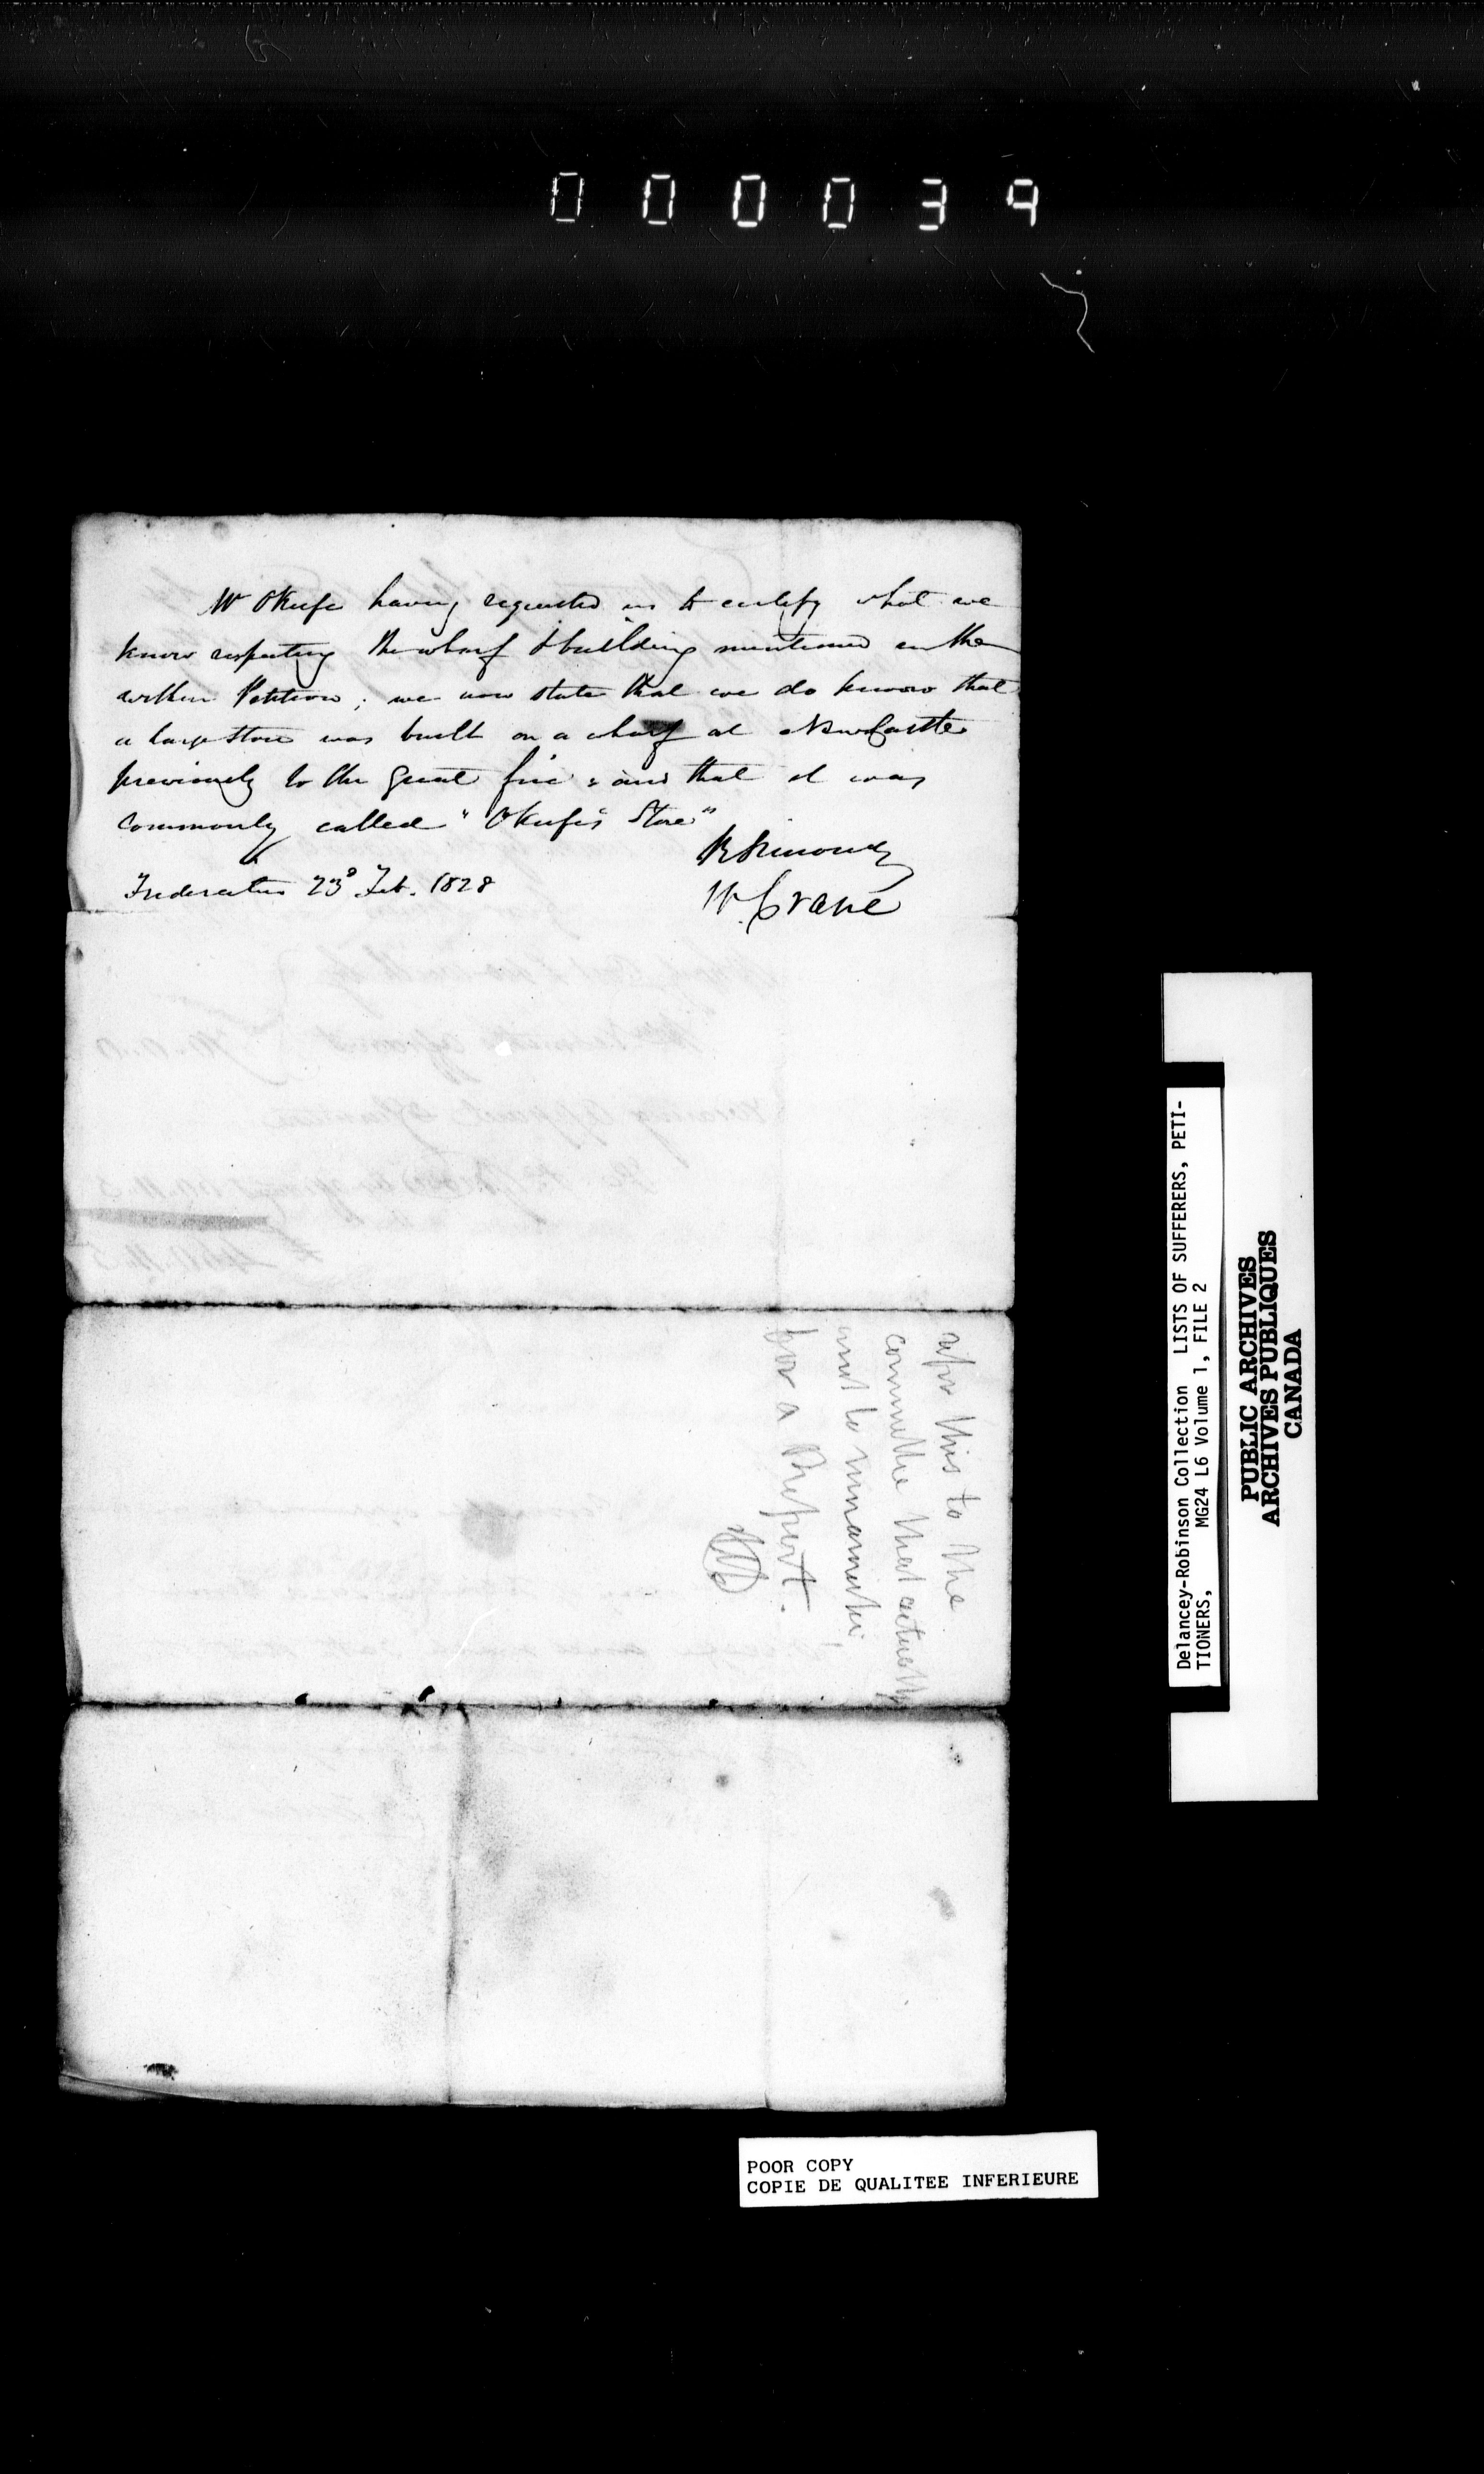 000039
Mr OKeefe having requested us to certify what we
know respecting the wharf & building mentioned in the
within Petition; we now state that we do know that
a large Store was built on a wharf at Newcastle
previously to the great fire; and that it was
commonly called "OKeefe's Store"
R Simonds
Fredericton 23d Feb. 1828
W. Crane
refer this to the
committee that actually
went to miramichi
for a Report.
Delancey-Robinson Collection LISTS OF SUFFERERS, PETI-
TIONERS, MG24 L6 Volume 1, FILE 2
PUBLIC ARCHIVES
ARCHIVES PUBLIQUES
CANADA
POOR COPY
COPIE DE QUALITEE INFERIEURE